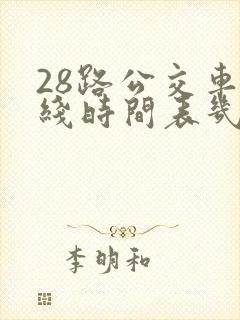 28路公交車
綫時間表幾
李明和